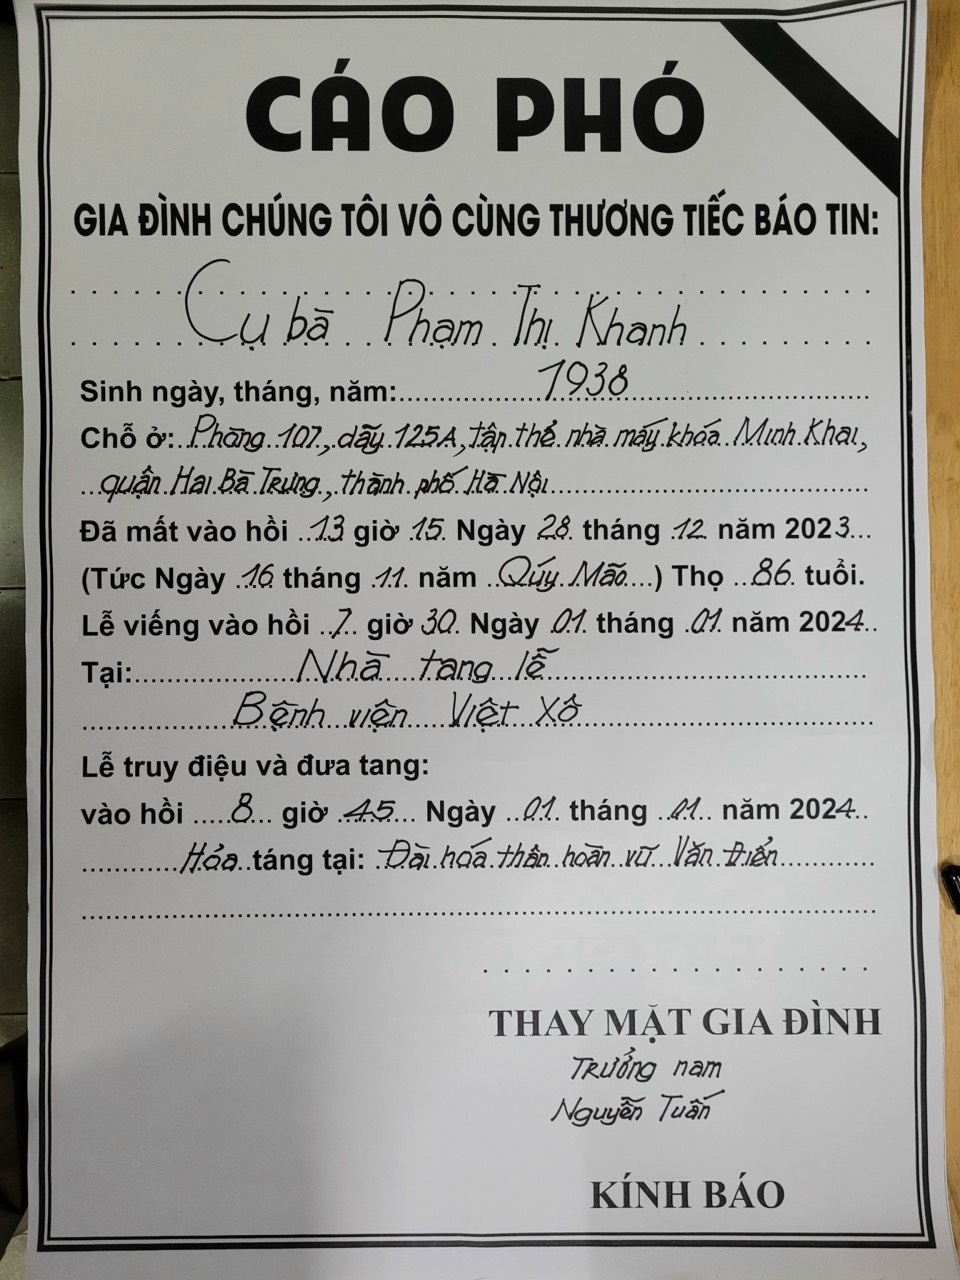 CÁO PHÓ
GIA ĐÌNH CHÚNG TÔI VÔ CÙNG THƯƠNG TIẾC BÁO TIN:
Cụ bà Phạm Thị Khanh
Sinh ngày, tháng, năm: 1938
Chỗ ở: Phòng 107, dãy 125A, tập thể nhà máy khóa Minh Khai,
quận Hai Bà Trưng, thành phố Hà Nội
Đã mất vào hồi 13 giờ 15 Ngày 28 tháng 12 năm 2023
(Tức Ngày 16 tháng 11 năm Qúy Mão) Thọ 86 tuổi.
Lễ viếng vào hồi 7 giờ 30 Ngày 01 tháng 01 năm 2024
Tại: Nhà tang lễ
Bệnh viện Việt Xô
Lễ truy điệu và đưa tang:
vào hồi 8 giờ 45 Ngày 01 tháng 01 năm 2024
Hỏa táng tại: Đài hóa thân hoàn vũ Văn Điển
THAY MẶT GIA ĐÌNH
Trưởng nam
Nguyễn Tuấn
KÍNH BÁO